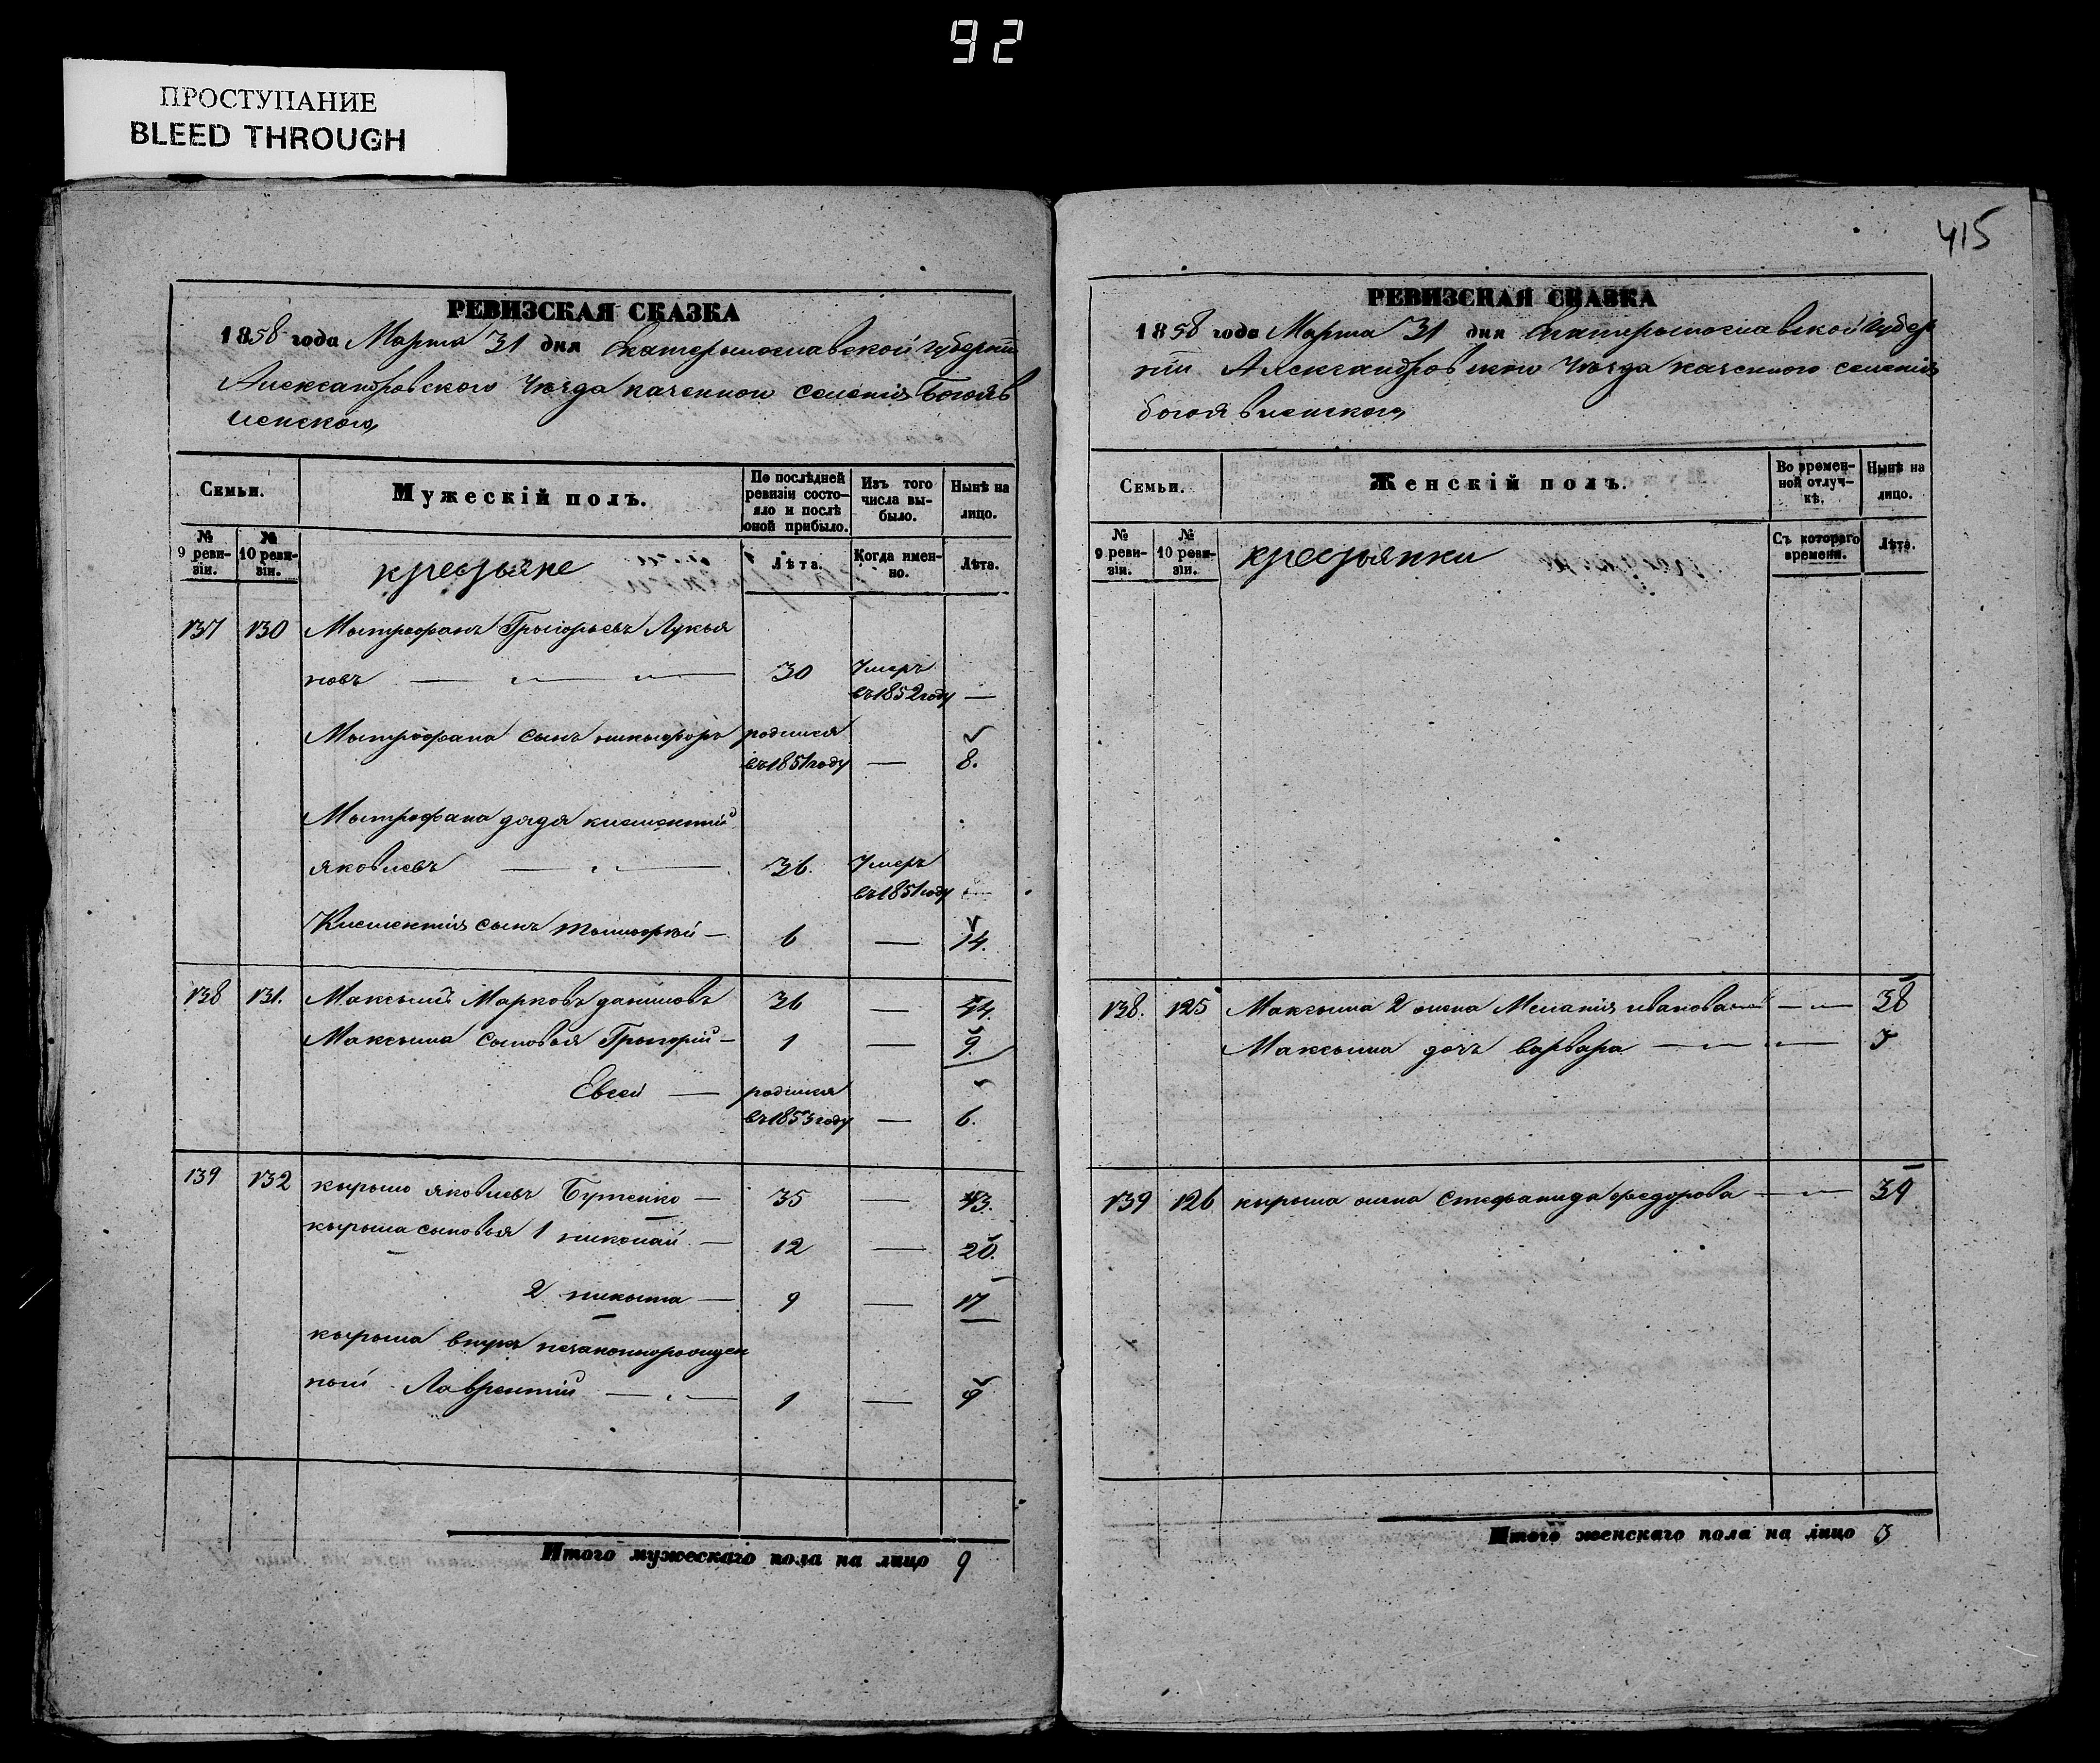 92
ПРОСТУПАНИЕ
BLEED THROUGH
РЕВИЗСКАЯ СКАЗКА
1858 года Марта 31 дня Екатерынославской губерніи
Александровского Уѣзда казенного селенія Богояв
ленского
Семьи.
Мужескій полъ.
По послѣдней ревизіи состо-
яло и послѣ оной прибыло.
Изъ того числа вы-
было.
Нынѣ на лицо.
№ 9 реви-
зіи.
№ 10 реви-
зіи.
крестьяне
Лѣта.
Когда имен-
но.
Лѣта.
137 130 Мытрофанъ Григорьевъ Лукья
новъ 30 Умеръ
въ 1852 году —
Мытрофана сынъ родился
въ 1851 году — 8.
Мытрофана дядя климентий
яковлевъ 36. Умеръ
въ 1851 году
Климентія сынъ тымофѣй — 6 — 14.
138 131. Максымъ Марковъ даниловъ 36 — 44.
Максыма сыновья Грыгорій — 1 — 9.
Евсей — родился
въ 1853 году — 6.
139 132 кырыло яковлевъ Бутенко — 35 — 43.
кырыла сыновья 1 николай — 12 — 20.
2 никыта — 9 — 17
кырыла внукъ незаконнорожден
ный Лаврентий — 1 — 9
Итого мужескаго пола на лицо 9
415
РЕВИЗСКАЯ СКАЗКА
1858 года Марта 31 дня Екатерынославской губер
ніи Александровского Уѣзда казенного селенія
богоявленского
Семьи.
Женскій полъ.
Во времен-
ной отлуч-
кѣ.
Нынѣ на лицо.
№ 9 реви-
зіи.
№ 10 реви-
зіи.
крестьянки
Съ котораго времени.
Лѣта.
138. 125 Максыма 2 жена Меланія иванова — 38
Максыма дочь варвара —
139 126 кырыла жена Стефанида федорова — 39
Итого женскаго пола на лицо 3